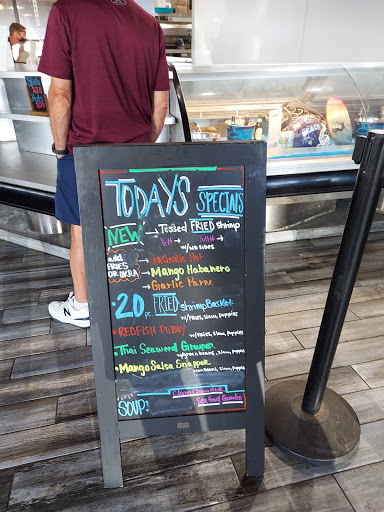 TODAYS SPECIALS
NEW → Tossed FRIED shrimp
w/two sides
add FRIES OR OKRA
→ Nashville Hot
→ Mango Habanero
→ Garlic Parm
20 pc. FRIED shrimp Basket
w/fries, slaw, puppies
REDFISH PO BOY w/fries, slaw, puppies
Thai Seaweed Grouper
w/green beans, slaw, puppies
Mango Salsa Snapper
SOUP:
Sea food Gumbo